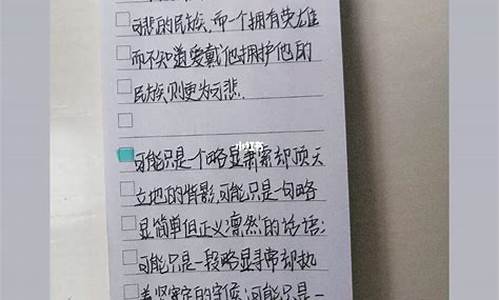 可悲的民族,而一个拥有荣雄
而不知道爱戴他拥护他的
民族则更为可悲.
小红书
可能只是一个略显萧索却顶天
立地的背影,可能只是一句略
显简单但正义凛然的话语;
可能只是一段略显寻常却热
着坚定的守候;可能只是一